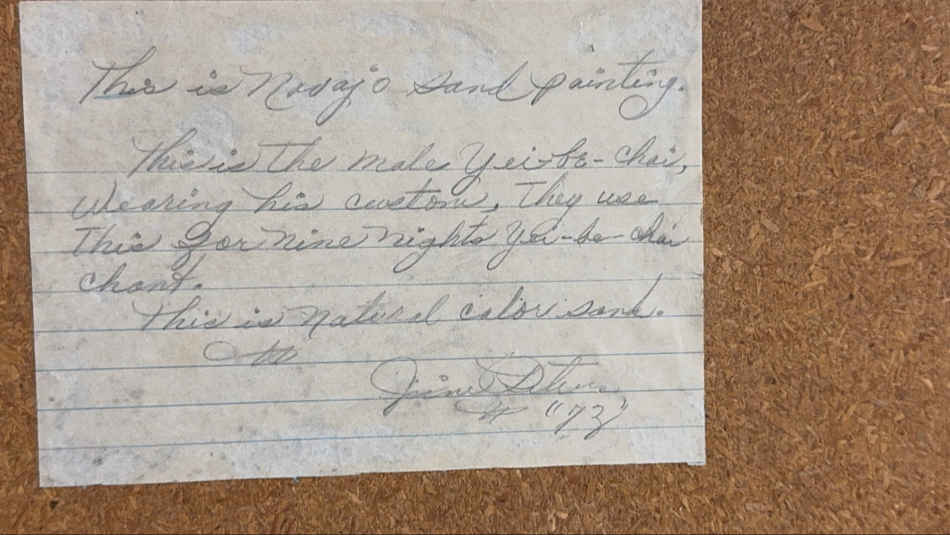 This is Navajo sand painting.
This is the male Yei-be-chai,
Wearing his custom. They use
This for nine nights Yei-be-chai
chant.
This is natural color sand.
"73"